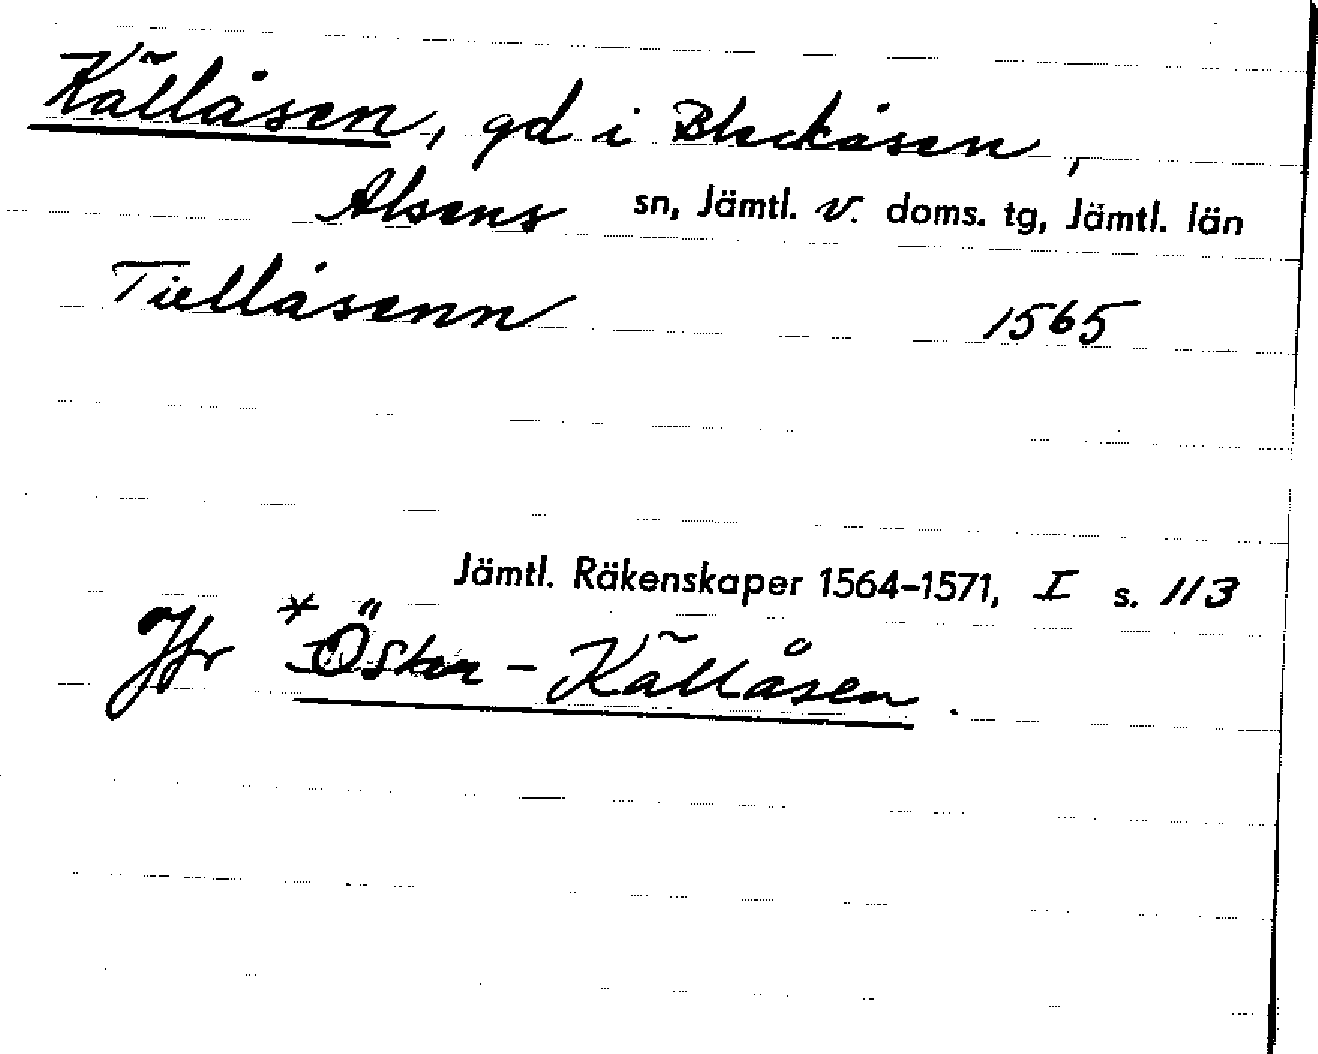 Källåsen, gd i Bleckåsen,
Alsens sn, Jämtl. v. doms. tg, Jämtl. län
Tiellåsenn 1565
Jämtl. Räkenskaper 1564-1571, I s. 113
Jfr *Öster-Källåsen.